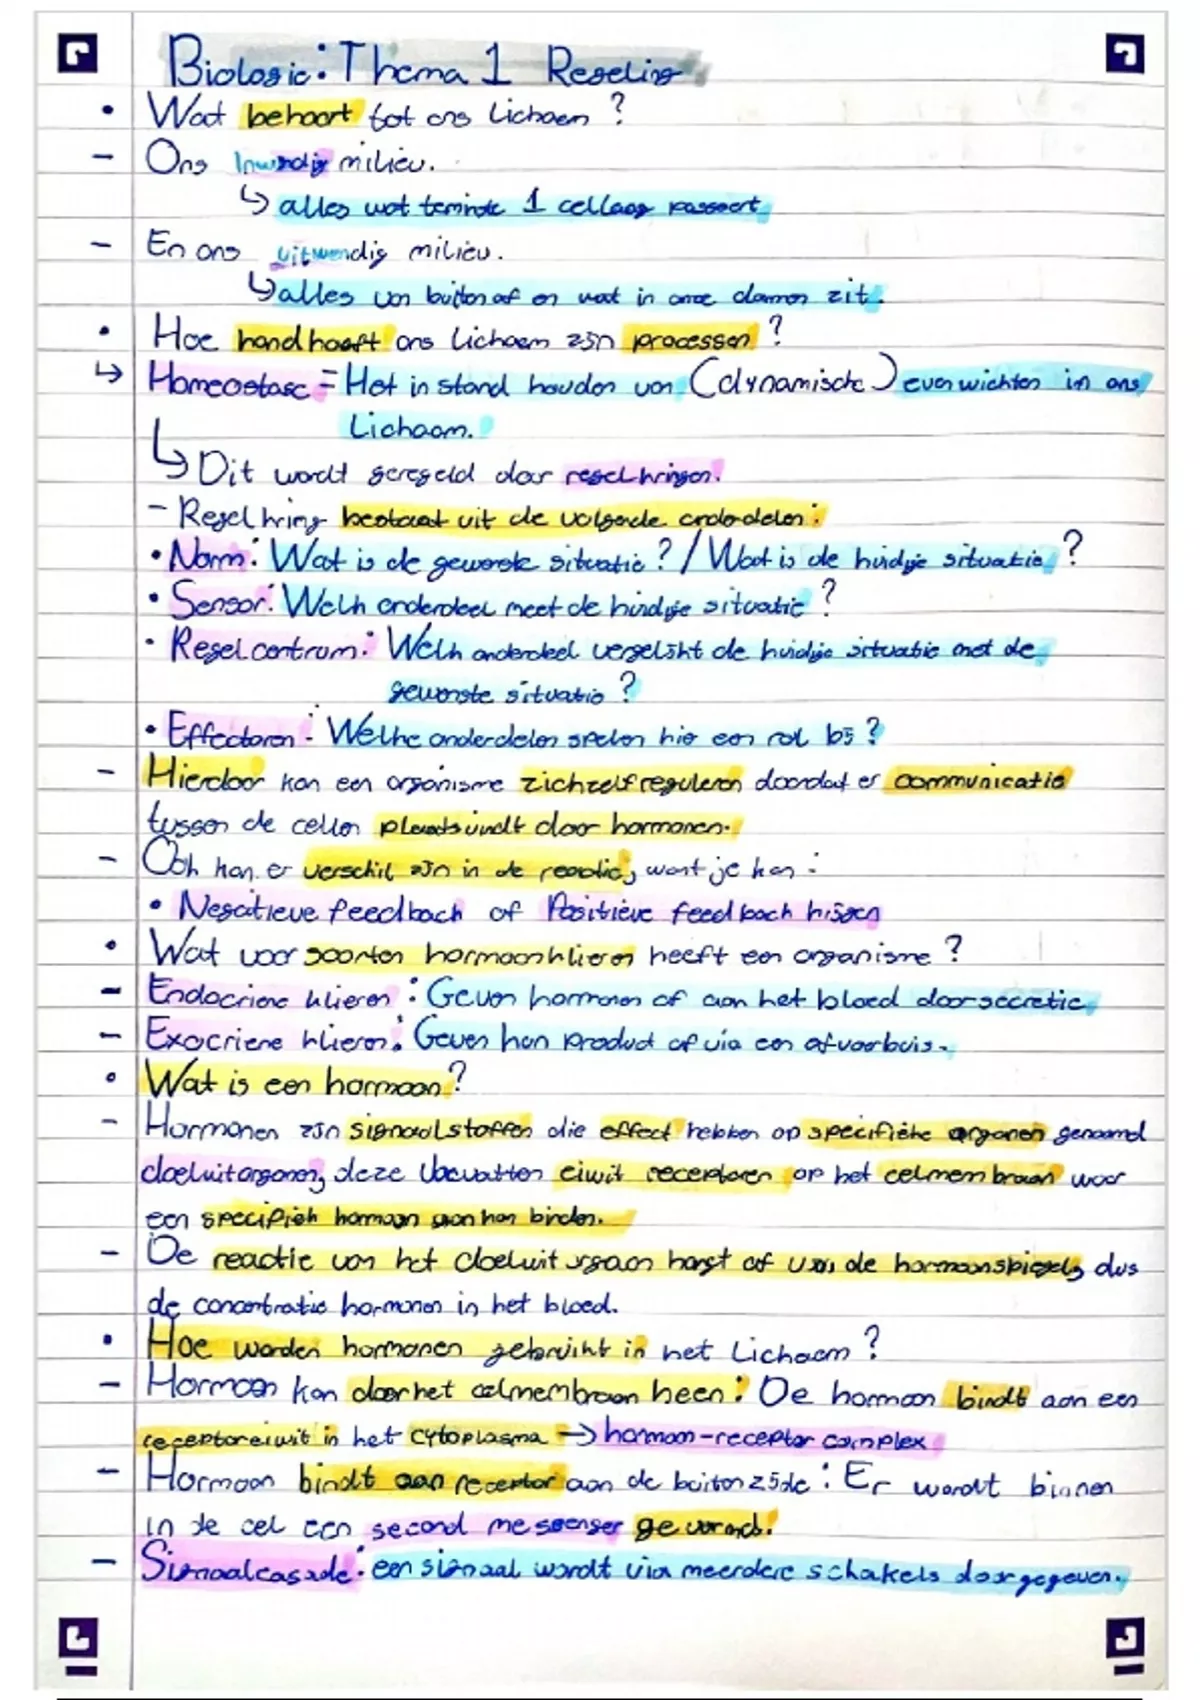 Biologie: Thema 1 Regeling
• Wat behoort tot ons Lichaem ?
- Ons Inwendig milieu.
↳ alles wat teminste 1 cellaag passeert
- En ons uitwendig milieu.
↳ alles van buiten af en wat in onze darmen zit.
• Hoe handhaaft ons Lichaam zijn processen ?
↳ Homeostase = Het in stand houden van (dynamische) evenwichten in ons
Lichaam.
↳ Dit wordt geregeld door regelkringen.
- Regelkring bestaat uit de volgende onderdelen:
• Norm: Wat is de gewenste situatie ? / Wat is de huidige situatie ?
• Sensor: Welk onderdeel meet de huidige situatie ?
• Regelcentrum: Welk onderdeel vergelijkt de huidige situatie met de
gewenste situatie ?
• Effectoren: Welke onderdelen spelen hier een rol bij ?
- Hierdoor kan een organisme zichzelf reguleren doordat er communicatie
tussen de cellen plaatsvindt door hormonen.
- Ook kan er verschil zijn in de reactie, want je kan :
• Negatieve feedback of Positieve feedback krijgen
• Wat voor soorten hormoonklieren heeft een organisme ?
- Endocriene klieren : Geven hormonen af aan het bloed door secretie.
- Exocriene klieren: Geven hun product af via een afvoerbuis.
• Wat is een hormoon?
- Hormonen zijn signaalstoffen die effect hebben op specifieke organen genaamd
doelwitorganen, deze bevatten eiwit receptoren op het celmembraan waar
een specifiek hormoon aan kan binden.
- De reactie van het doelwit orgaan hangt af van de hormoonspiegel, dus
de concentratie hormonen in het bloed.
• Hoe worden hormonen gebruikt in het Lichaam ?
- Hormoon kan door het celmembraan heen: De hormoon bindt aan een
receptoreiwit in het cytoplasma → hormoon-receptor complex
- Hormoon bindt aan receptor aan de buitenzijde : Er wordt binnen
in de cel een second messenger gevormd.
- Signaalcascade: een signaal wordt via meerdere schakels doorgegeven.